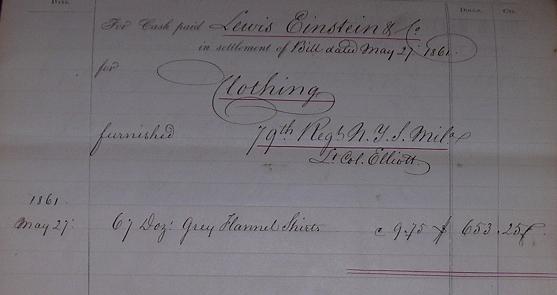 Dolls. Cts.
For Cash paid Lewis Einstein & Co
in settlement of Bill dated May 27 1861.
for
Clothing
furnished 79th Regt N.Y.S. Mila
Lt Col. Elliott
1861.
May 27. 67 Doz. Grey Flannel Shirts c 9.75 $ 653.25